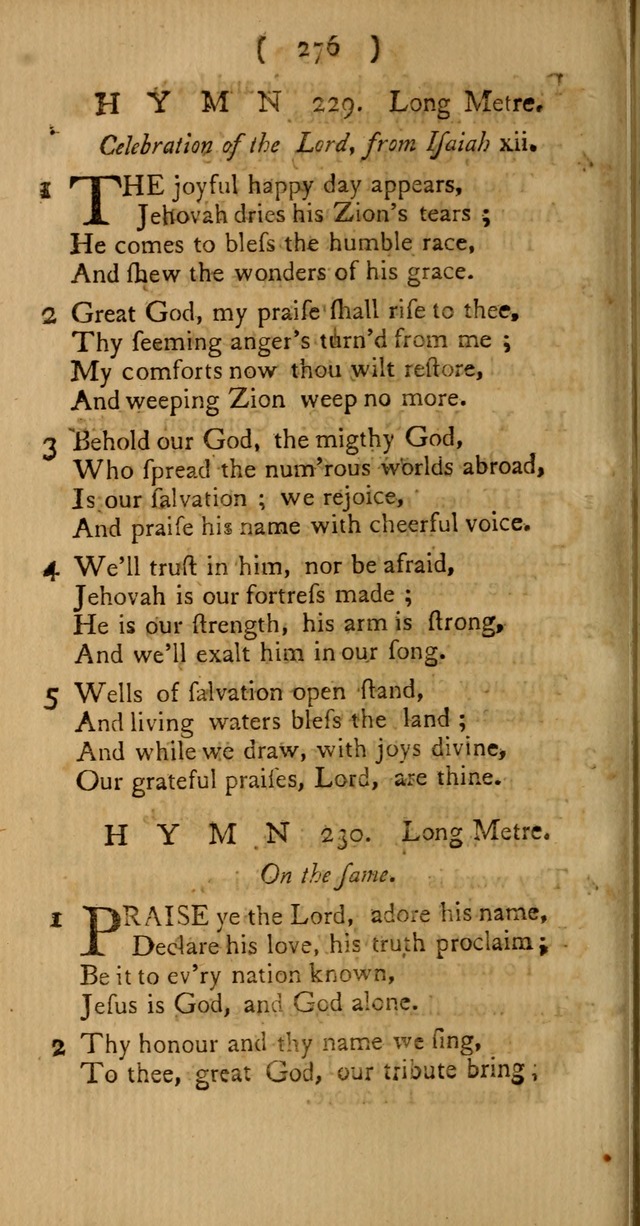 ( 276 )
H Y M N 229. Long Metre.
Celebration of the Lord, from Iſaiah xii.
1 THE joyful happy day appears,
Jehovah dries his Zion's tears ;
He comes to bleſs the humble race,
And ſhew the wonders of his grace.
2 Great God, my praiſe ſhall riſe to thee,
Thy ſeeming anger's turn'd from me ;
My comforts now thou wilt reſtore,
And weeping Zion weep no more.
3 Behold our God, the migthy God,
Who ſpread the num'rous worlds abroad,
Is our ſalvation ; we rejoice,
And praiſe his name with cheerful voice.
4 We'll truſt in him, nor be afraid,
Jehovah is our fortreſs made ;
He is our ſtrength, his arm is ſtrong,
And we'll exalt him in our ſong.
5 Wells of ſalvation open ſtand,
And living waters bleſs the land ;
And while we draw, with joys divine,
Our grateful praiſes, Lord, are thine.
H Y M N 230. Long Metre.
On the ſame.
1 PRAISE ye the Lord, adore his name,
Declare his love, his truth proclaim ;
Be it to ev'ry nation known,
Jeſus is God, and God alone.
2 Thy honour and thy name we ſing,
To thee, great God, our tribute bring ;